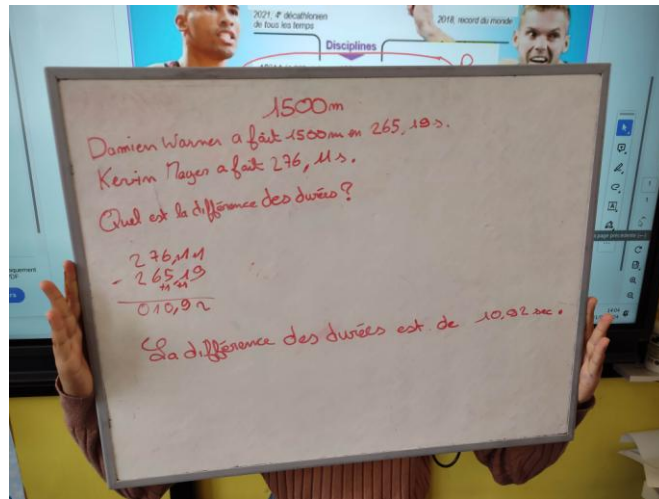 2021, 4e décathlonien
de tous les temps
2018, record du monde
Disciplines
1500m
Damien Warner a fait 1500m en 265,19 s.
Kevin Mayer a fait 276,11 s.
Quel est la différence des durées ?
276,11
- 265,19
+1 +1
010,92
La différence des durées est de 10,92 sec.